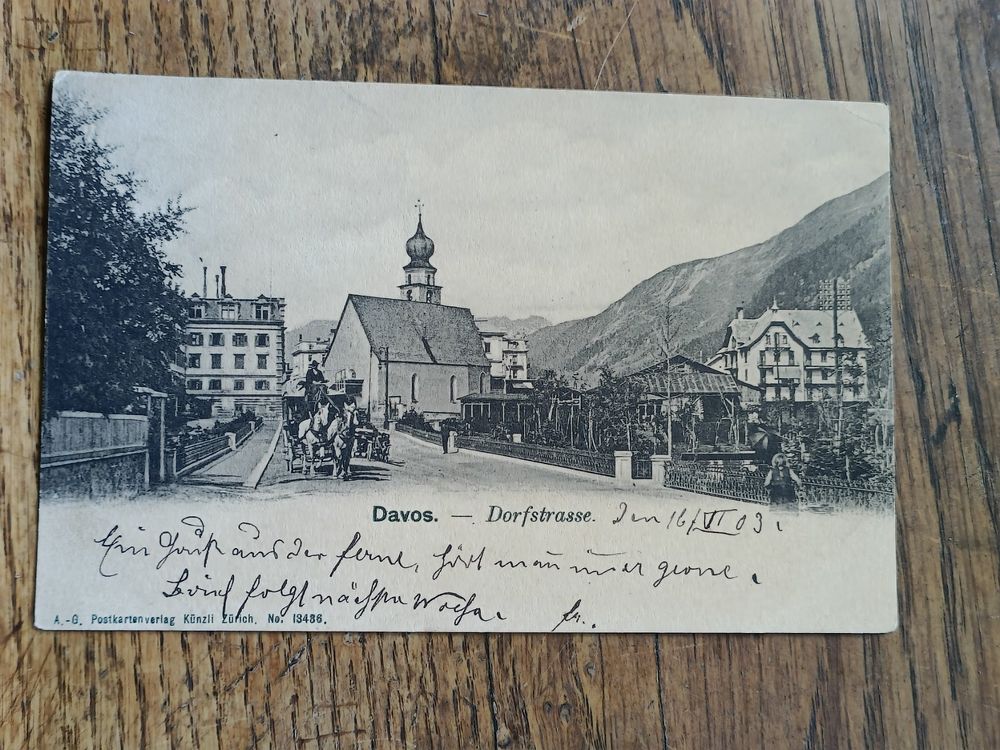 Davos. — Dorfstrasse. den 16/VI 03.
Ein Gruß aus der ferne, hört man immer gerne.
Brief folgt nächste Woche. fr..
A.-G. Postkartenverlag Künzli Zürich, No. 13486.